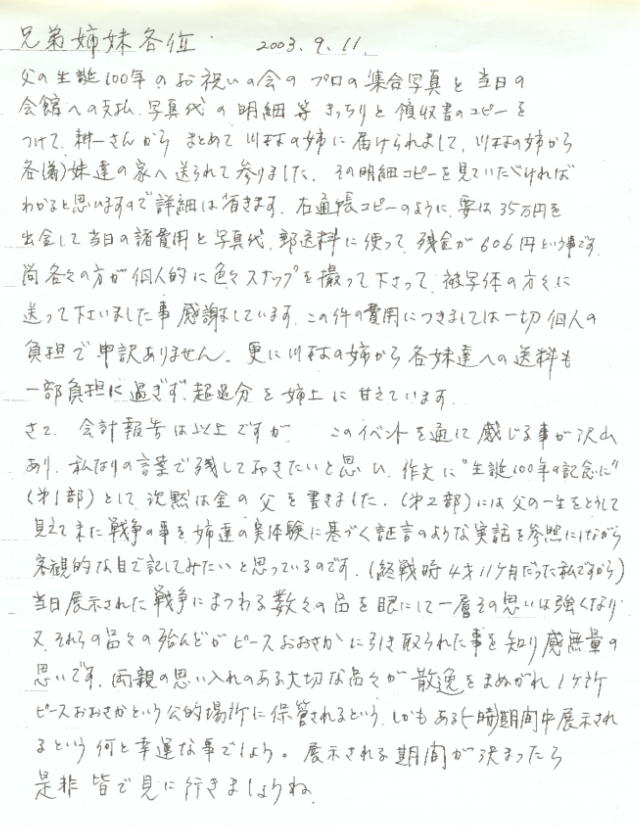 兄弟姉妹各位. 2003.9.11.
父の生誕100年のお祝いの会の プロの集合写真と当日の
会館への支払、写真代の明細等 きっちりと領収書のコピーを
つけて、耕一さんから まとめて川村の姉に届けられまして、川村の姉から
各妹達の家へ送られて参りました. その明細コピーを見ていただければ
わかると思いますので詳細は省きます. 右通帳コピーのように、要は35万円を
出金して当日の諸費用と写真代、郵送料に使って、残金が606円という事です.
尚各々の方が個人的に色々スナップを撮って下さって、被写体の方々に
送って下さいました事感謝しています. この件の費用につきましては一切個人の
負担で申訳ありません. 更に川村の姉から各妹達への送料も
一部負担に過ぎず、超過分を姉上に甘えています.
さて、会計報告は以上ですが このイベントを通じて感じる事が沢山
あり、私なりの言葉で残しておきたいと思い、作文に"生誕100年の記念に"
(第1部)として、沈黙は金の父を書きました. (第2部)には父の一生をとうして
見えてきた戦争の事を姉達の実体験に基づく証言のような実話を参照にしながら
客観的な目で記してみたいと思っているのです. (終戦時4才11ヶ月だった私ですから)
当日展示された戦争にまつわる数々の品を眼にして一層その思いは強くなり
又、それらの品々の殆んどがピースおおさかに引き取られた事を知り感無量の
思いです. 両親の思い入れのある大切な品々が散逸をまぬがれ1ヶ所
ピースおおさかという公的場所に保管されるという、しかもある(一時)期間中展示され
るという何と幸運な事でしょう。展示される期間が決まったら
是非皆で見に行きましょうね.